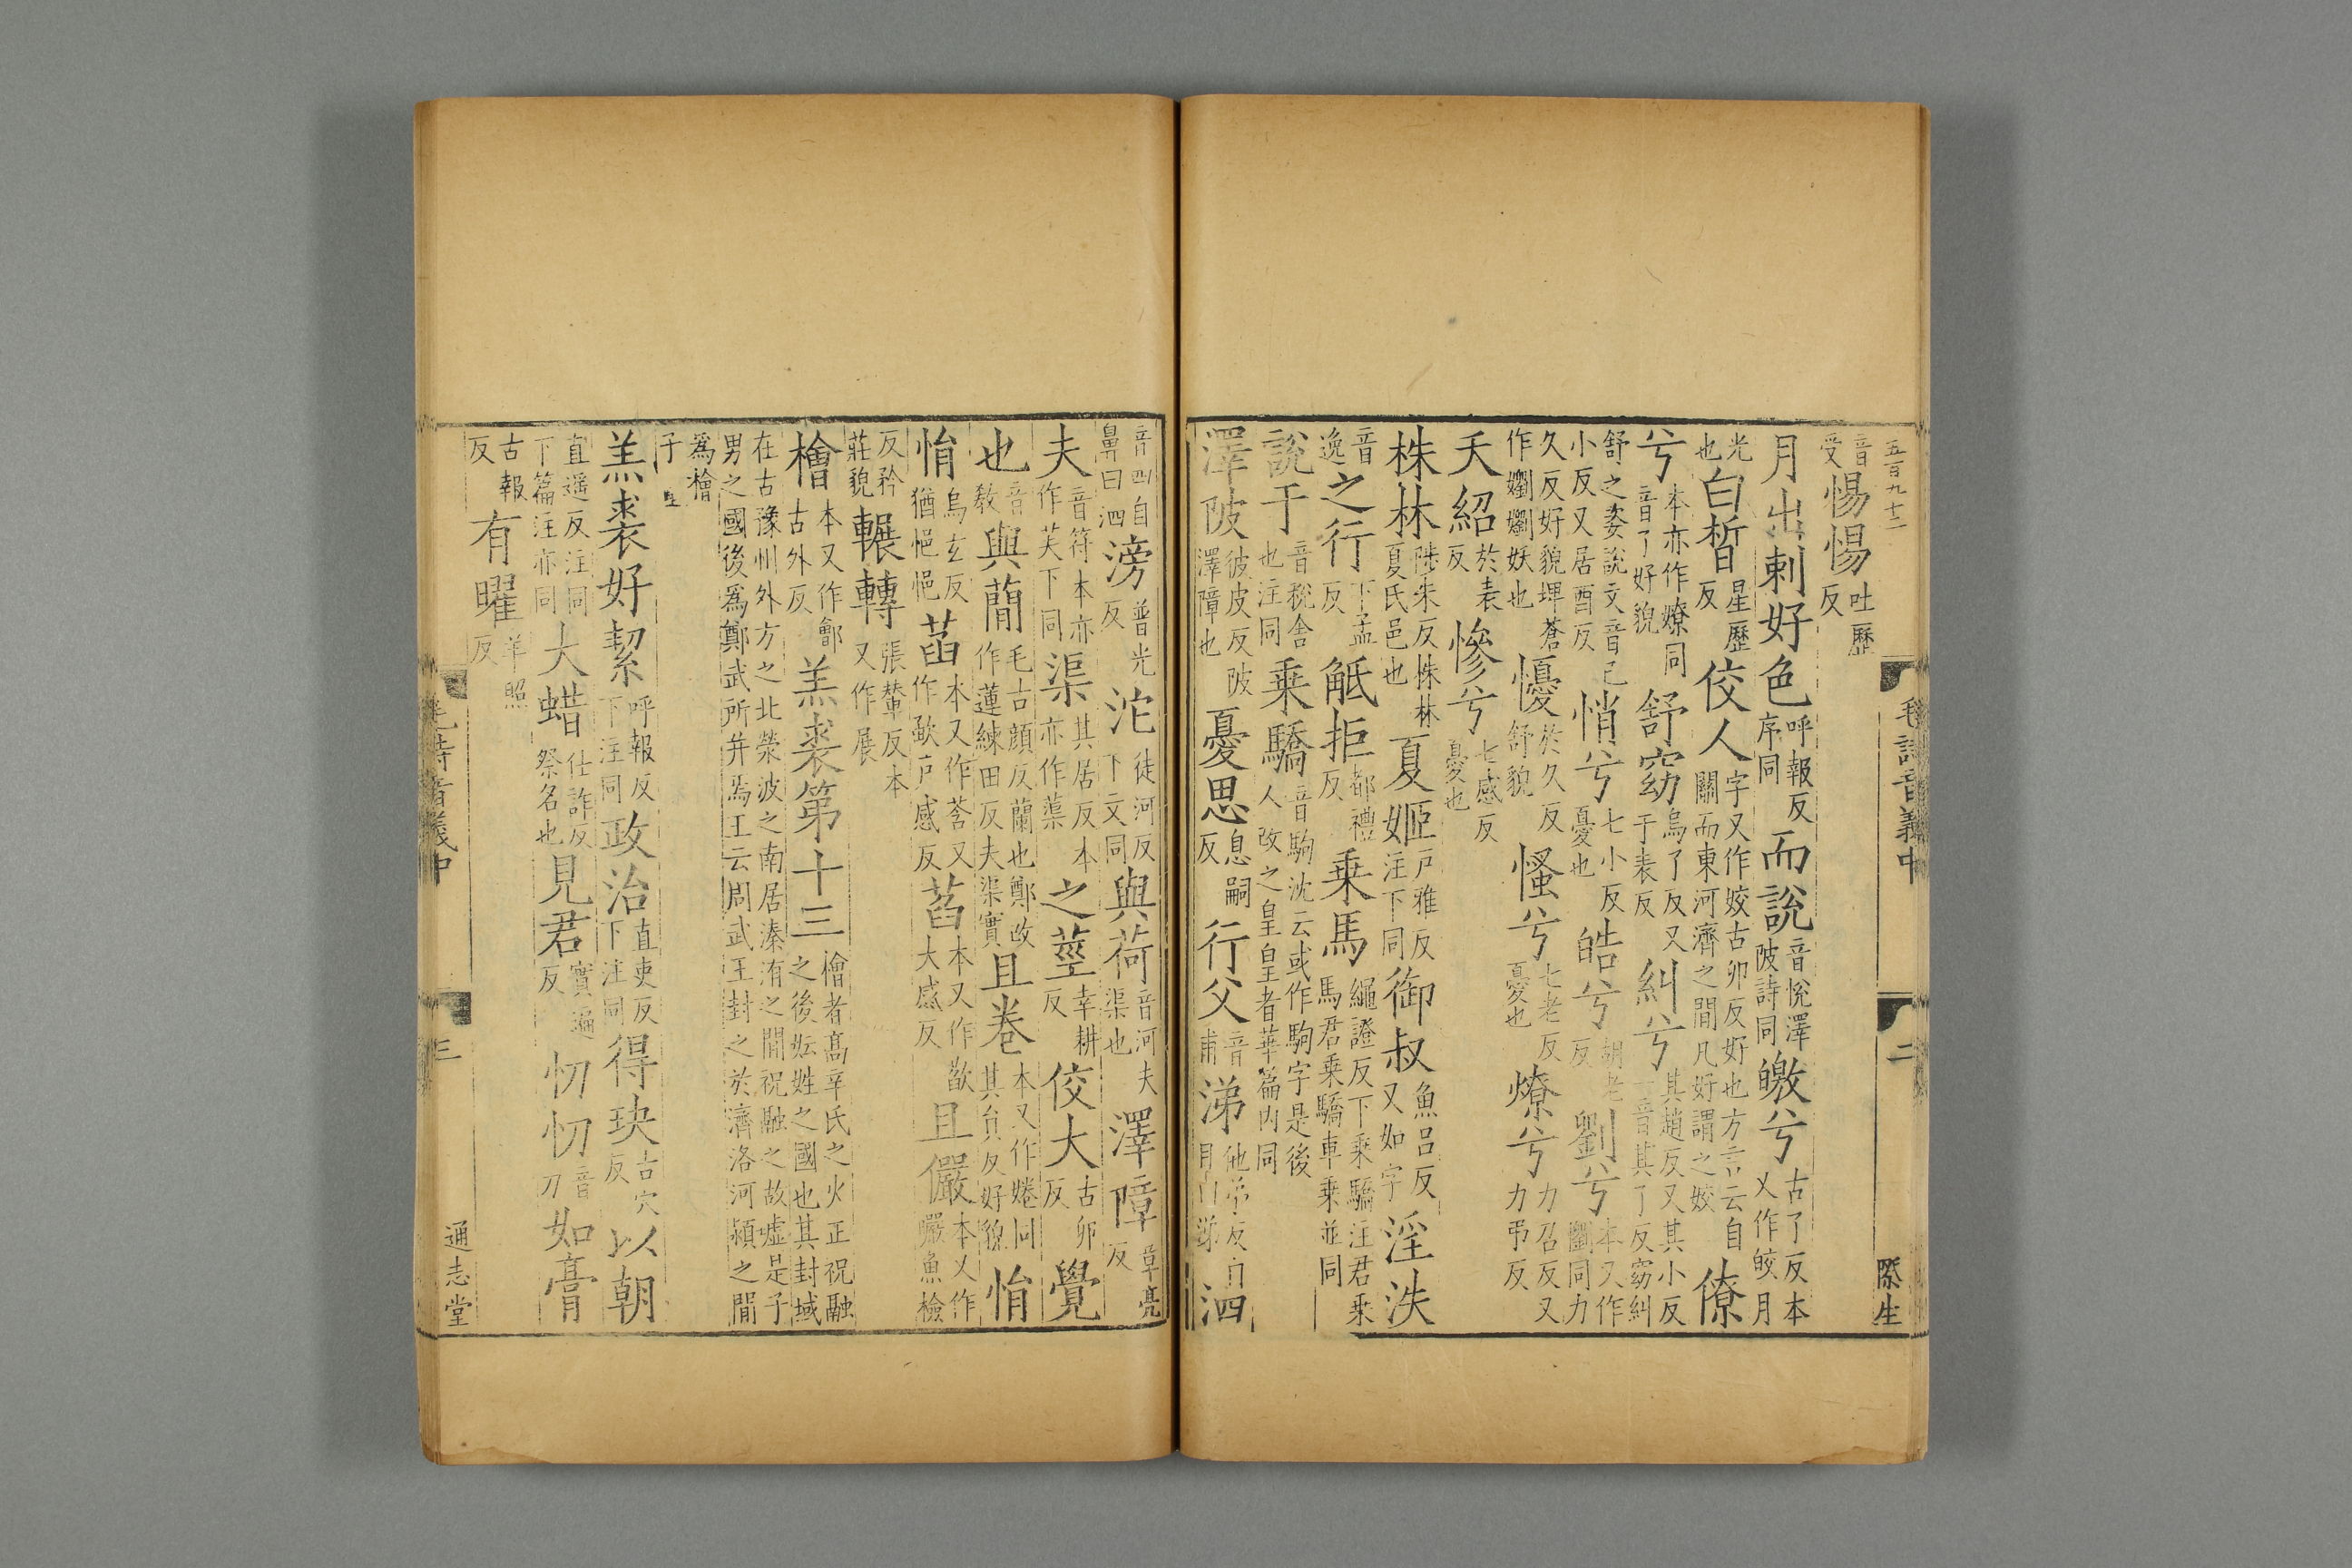 五百九十二
毛詩音義中
二
際生
音受惕惕吐歷反
月出刺好色呼報反序同而說音悅澤陂詩同皦兮古了反本乂作皎月
光也白晳星歷反佼人字又作姣古卯反好也方言云自關而東河濟之閒凡好謂之姣僚
兮本亦作嫽同音了好貌舒窈烏了反又于表反糾兮其趙反又其小反一音其了反窈糾
舒之姿說文音己小反又居酉反悄兮七小反憂也皓兮胡老反劉兮本又作嬼同力
久反好貌埤蒼作嬼嬼妖也懮於久反舒貌慅兮七老反憂也燎兮力召反又力弔反
夭紹於表反慘兮七感反憂也
株林陟朱反株林夏氏邑也夏姬戶雅反注下同御叔魚呂反又如字淫泆
音逸之行下孟反觝拒都禮反乗馬繩證反下乗驕注君乗馬君乗驕車乗並同
說于音稅舍也注同乗驕音駒沈云或作駒字是後人改之皇皇者華篇内同
澤陂彼皮反陂澤障也憂思息嗣反行父音甫涕他弟反自目曰涕泗
音四自鼻曰泗滂普光反沱徒河反下文同與荷音河夫渠也澤障章亮反
夫音符本亦作芙下同渠其居反本亦作蕖之莖幸耕反佼大古卯反覺
也音敎與蕳毛古顔反蘭也鄭改作蓮練田反夫渠實且卷本又作婘同其貟反好貌悁
悁烏玄反猶悒悒菡本又作莟又作歛戶感反萏本又作歚大感反且儼本乂作曮魚檢
反矜莊貌輾轉張輦反本又作展
檜本又作鄶古外反羔裘第十三檜者高辛氏之火正祝融之後妘姓之國也其封域
在古豫州外方之北滎波之南居溱洧之閒祝融之故墟是子男之國後爲鄭武所并焉王云周武王封之於濟洛河潁之閒
爲檜子
羔裘好絜呼報反下注同政治直吏反下注同得玦古穴反以朝
直遥反注同下篇注亦同大蜡仕詐反祭名也見君賢遍反忉忉音刀如膏
古報反有曜羊照反
毛詩音義中
三
通志堂